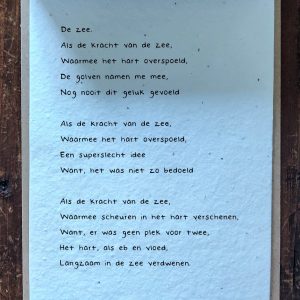 De zee.
Als de kracht van de zee,
Waarmee het hart overspoeld,
De golven namen me mee,
Nog nooit dit geluk gevoeld
Als de kracht van de zee,
Waarmee het hart overspoeld,
Een superslecht idee
Want, het was niet zo bedoeld
Als de kracht van de zee,
Waarmee scheuren in het hart verschenen,
Want, er was geen plek voor twee,
Het hart, als eb en vloed,
Langzaam in de zee verdwenen.